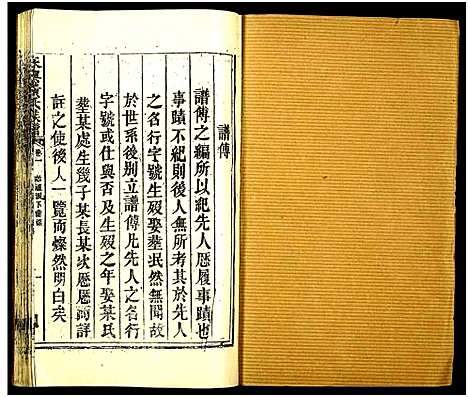 譜傳
譜傳之編所以紀先人歷履事蹟也
事蹟不紀則後人無所考其於先人
之名行字號生歿娶塟泯然無聞故
於世系後別立譜傳凡先人之名行
字號或仕與否及生歿之年娶某氏
塟某處生幾子某長某次歷歷而詳
註之使後人一覽而燦然明白矣
卷一
一